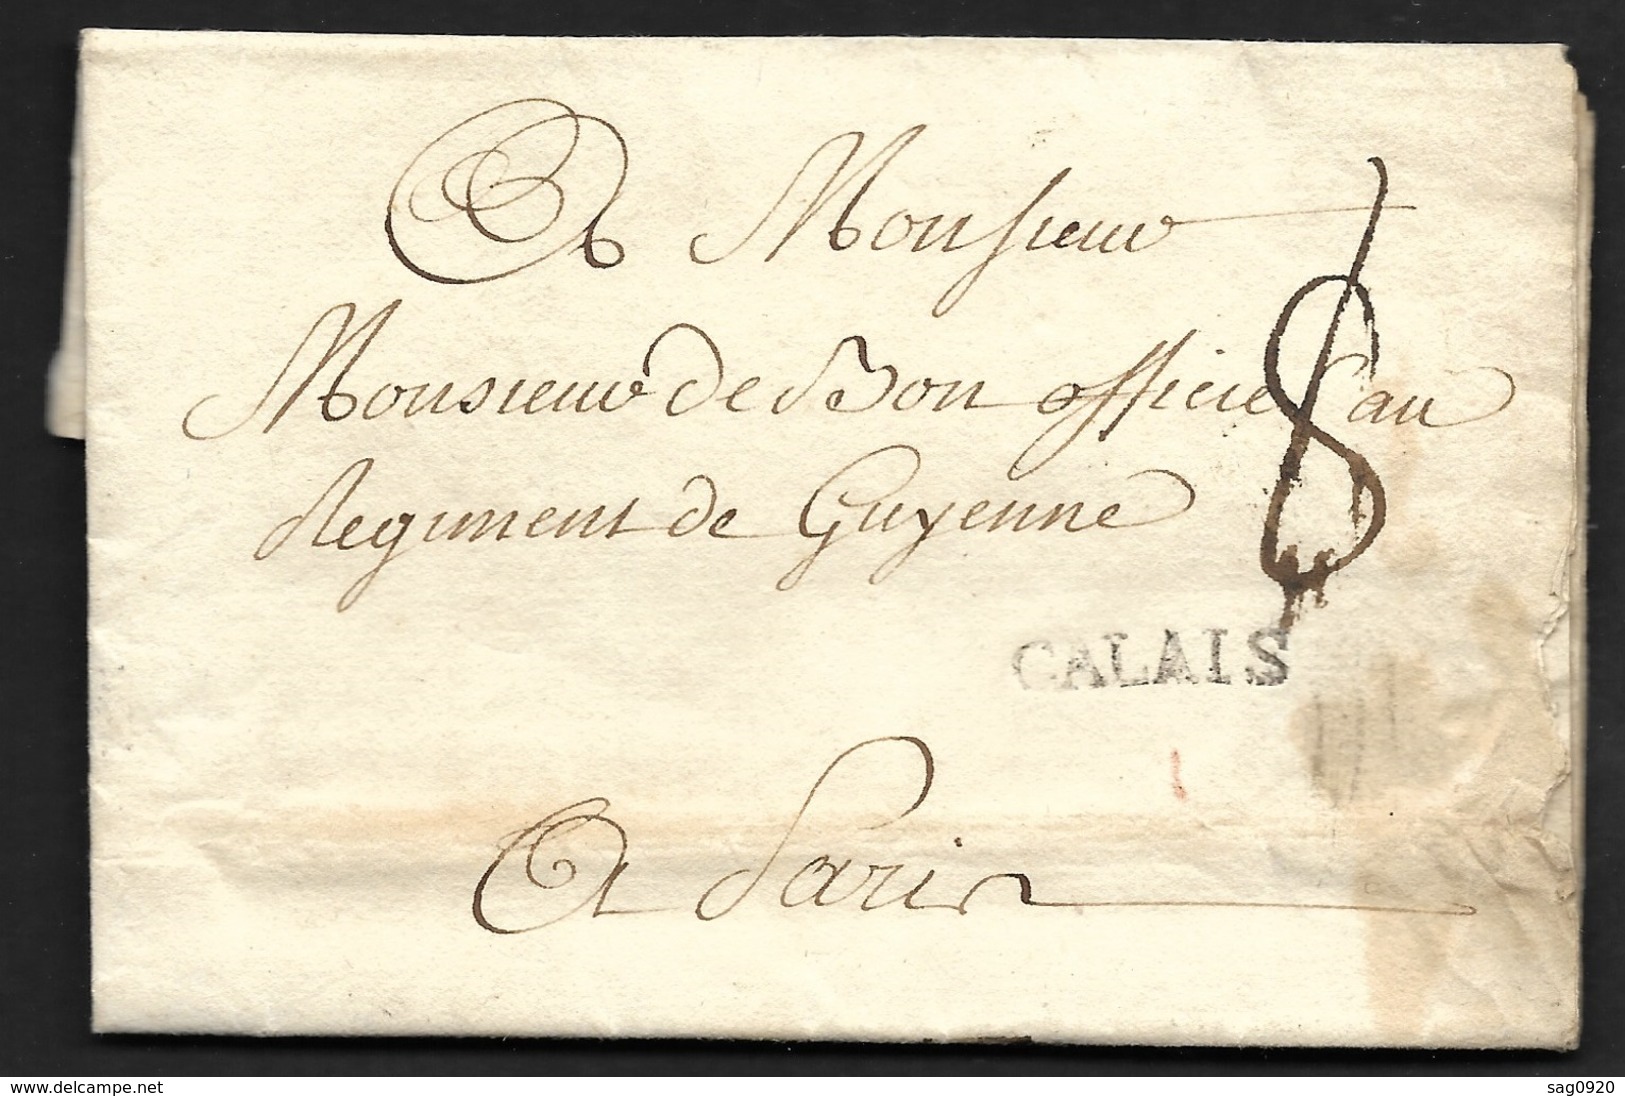 A Monsieur
Monsieur de Bon officier au
Regiment de Guyenne
8
CALAIS
A Paris
www.delcampe.net
sag0920